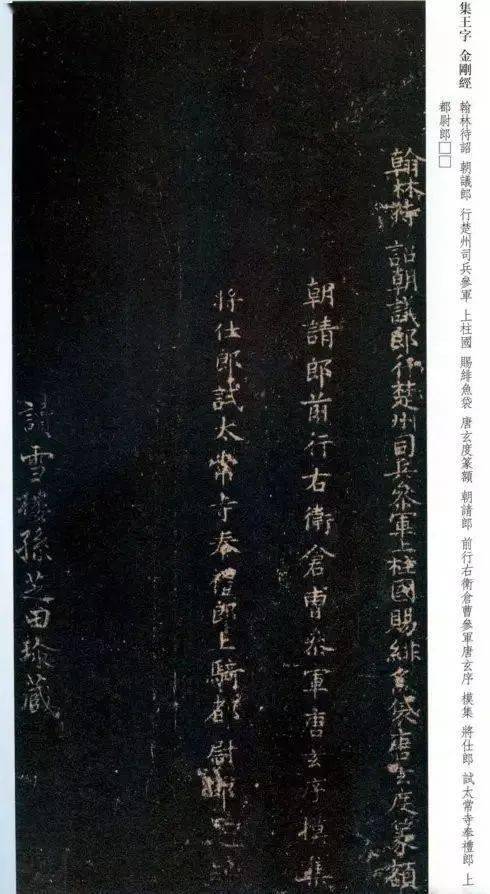 集王字 金剛經
翰林待詔 朝議郎 行楚州司兵參軍 上柱國 賜緋魚袋 唐玄度篆額 朝請郎 前行右衛倉曹參軍唐玄序 模集 將仕郎 試太常寺奉禮郎 上
都尉郎□□
翰林待詔朝議郎行楚州司兵參軍上柱國賜緋魚袋唐玄度篆額
朝請郎前行右衛倉曹參軍唐玄序模集
將仕郎試太常寺奉禮郎上騎都尉郎
讀雪樓孫芝田珍藏